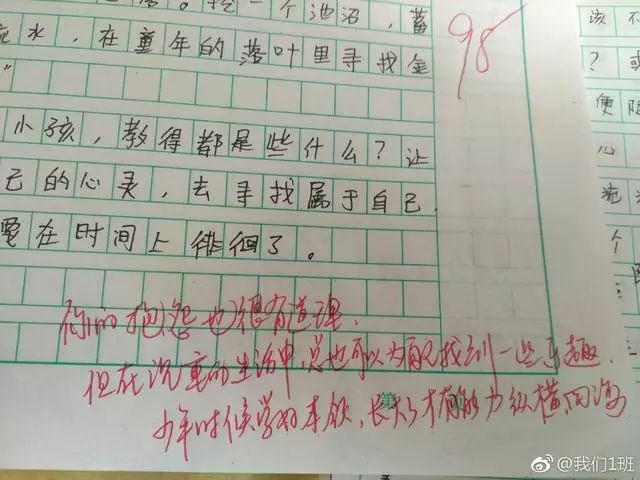 一个池沼，蓄
水，在童年的落叶里寻找金
”
小孩，教得都是些什么？让
己的心灵，去寻找属于自己
要在时间上徘徊了。
98
你的抱怨也很有道理.
但在沉重的生活中，总也可以为自己找到一些乐趣.
少年时候学好本领，长大了才有能力纵横四海
第
该不
？或
便陷
心
个
@我们1班